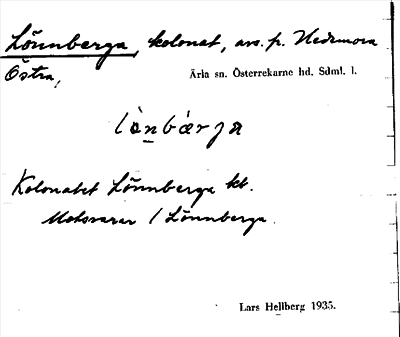 Lönnberga, kolonat, avs. p. Hedemora
Östra,
Ärla sn. Österrekarne hd. Sdml. l.
lònbærja
Kolonatet Lönnberga kt.
Motsvarar / Lönnberga.
Lars Hellberg 1935.